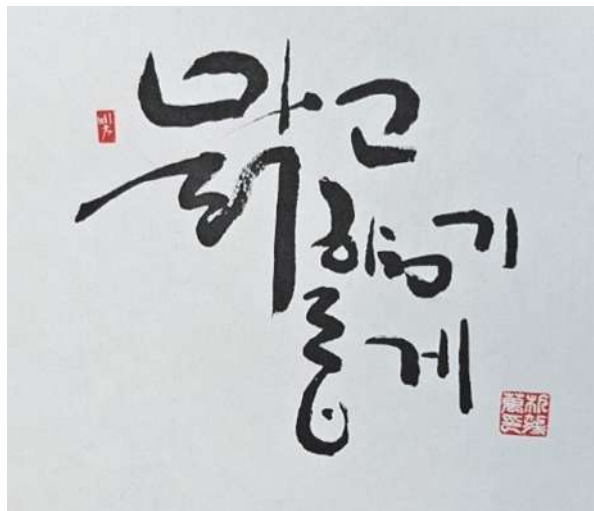 맑고
향기
롭게